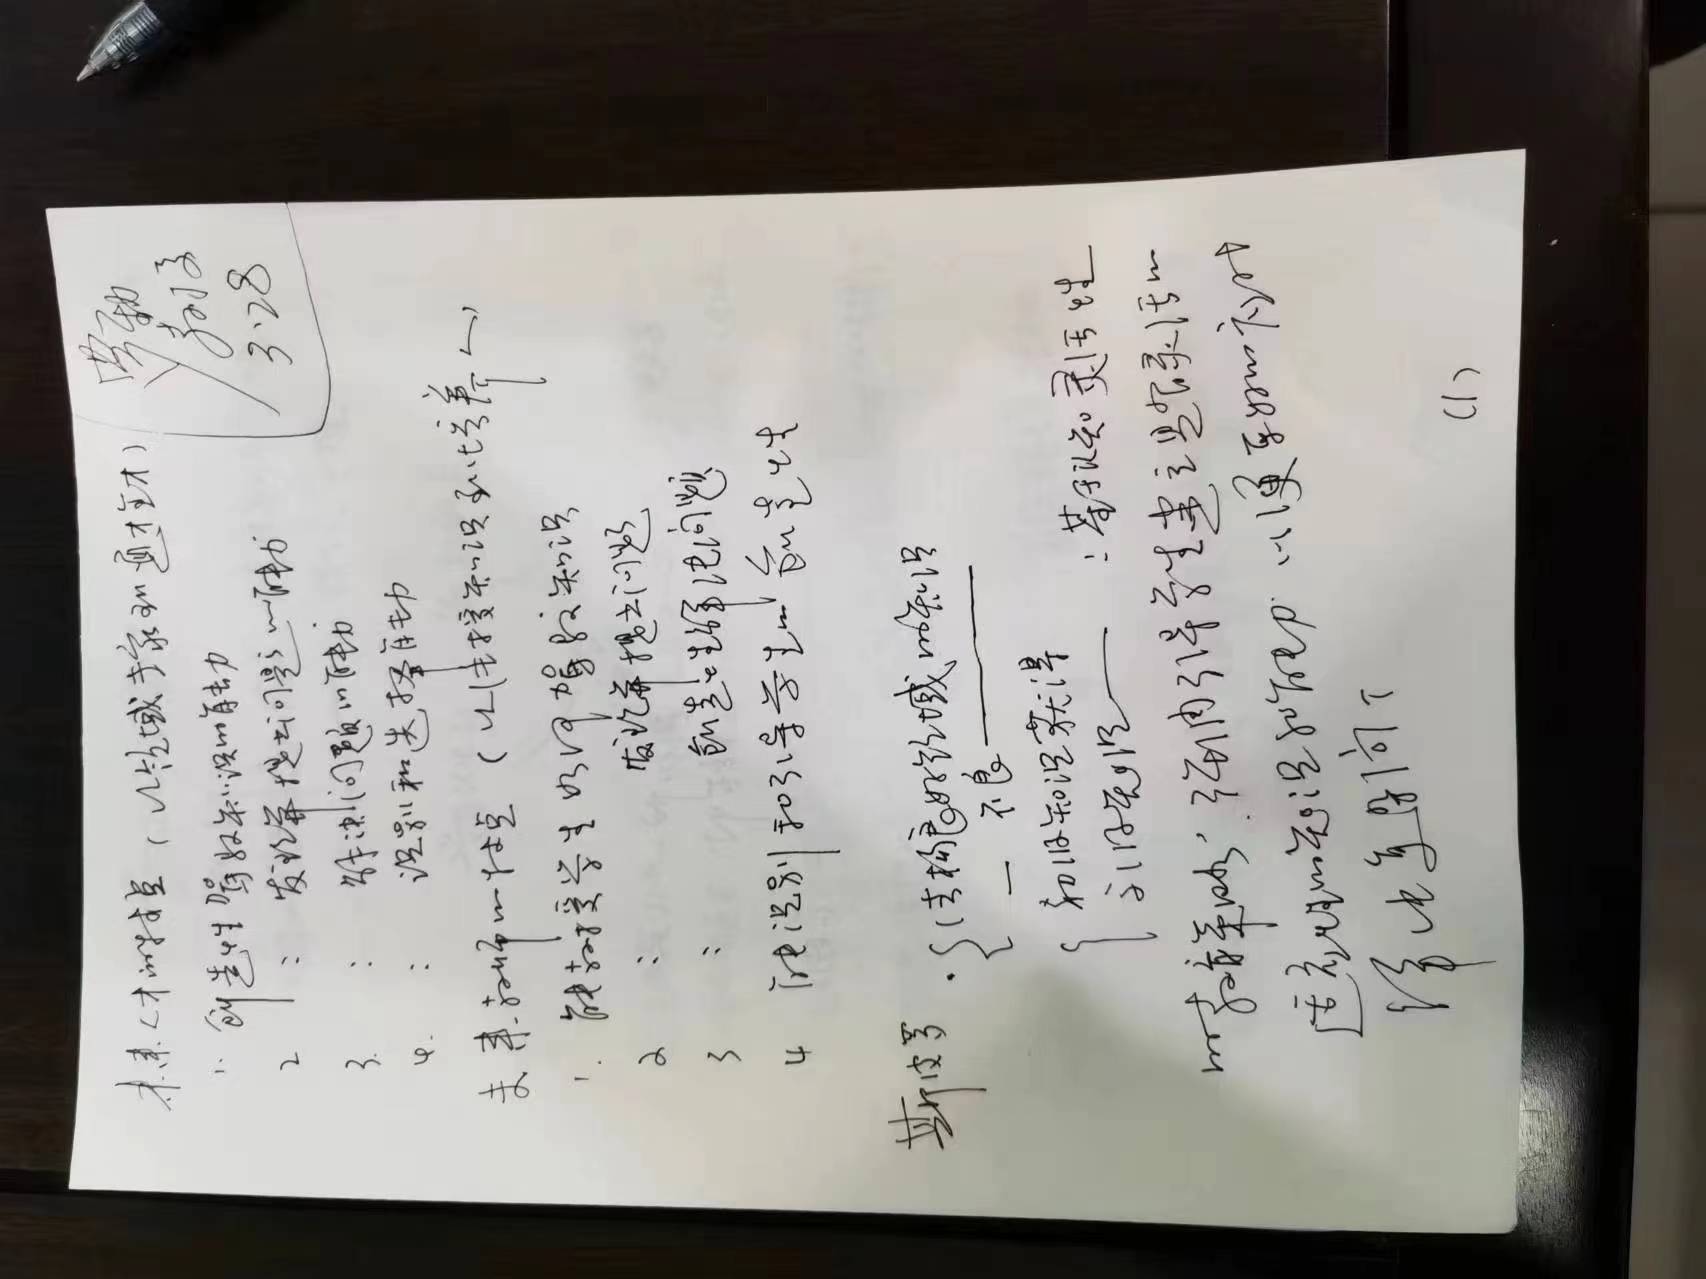 未来人才的特点（从领域专家到通才全才）
劳动
教授
3.28
1. 创造性驾驭知识的能力
2 : 发现并提出问题的能力
3. : 解决问题的能力
4. : 识别和选择能力
未来教师的特点（从传授知识到培养人）
1. 能教授学生如何驾驭知识
2 : 发现并提出问题
3 : 创造性解决问题
4 能识别和引导学生的创造性
斯皮罗 · { 结构良好领域的知识
— 不良 ——
{ 初级知识获得
高级知识 —— : 基于认知灵活性
的教育策略, 强调引导学生建立是否灵活的
适应性的知识和能力 以便更好的应对
解决复杂问
(1)